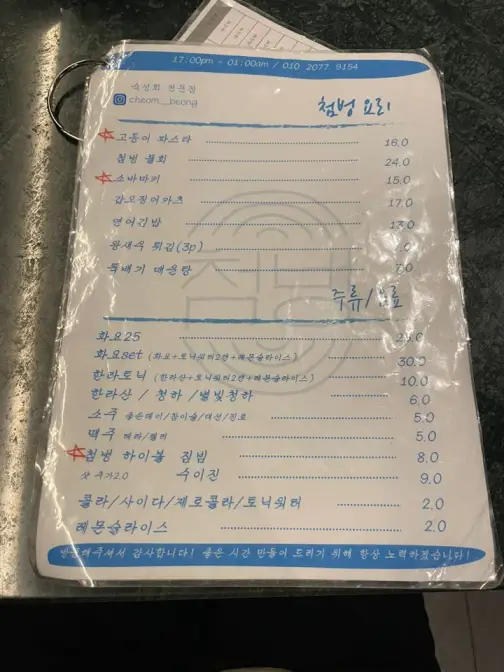 17:00pm - 01:00am / 010 2077 9154
숙성회 전문점
cheom__beong
첨벙 요리
고등어 파스타 16.0
첨벙 물회 24.0
소바마끼 15.0
갑오징어카츠 17.0
연어김밥 13.0
왕새우 튀김(3p) .0
뚝배기 매운탕 7.0
주류/음료
화요25 .0
화요set (화요+토닉워터2캔+레몬슬라이스) 30.0
한라토닉 (한라산+토닉워터2캔+레몬슬라이스) 10.0
한라산 / 청하 / 별빛청하 6.0
소주 좋은데이/참이슬/대선/진로 5.0
맥주 테라/켈리 5.0
첨벙 하이볼 짐빔 8.0
샷 추가2.0 수이진 9.0
콜라/사이다/제로콜라/토닉워터 2.0
레몬슬라이스 2.0
방문해주셔서 감사합니다! 좋은 시간 만들어 드리기 위해 항상 노력하겠습니다!
첨벙